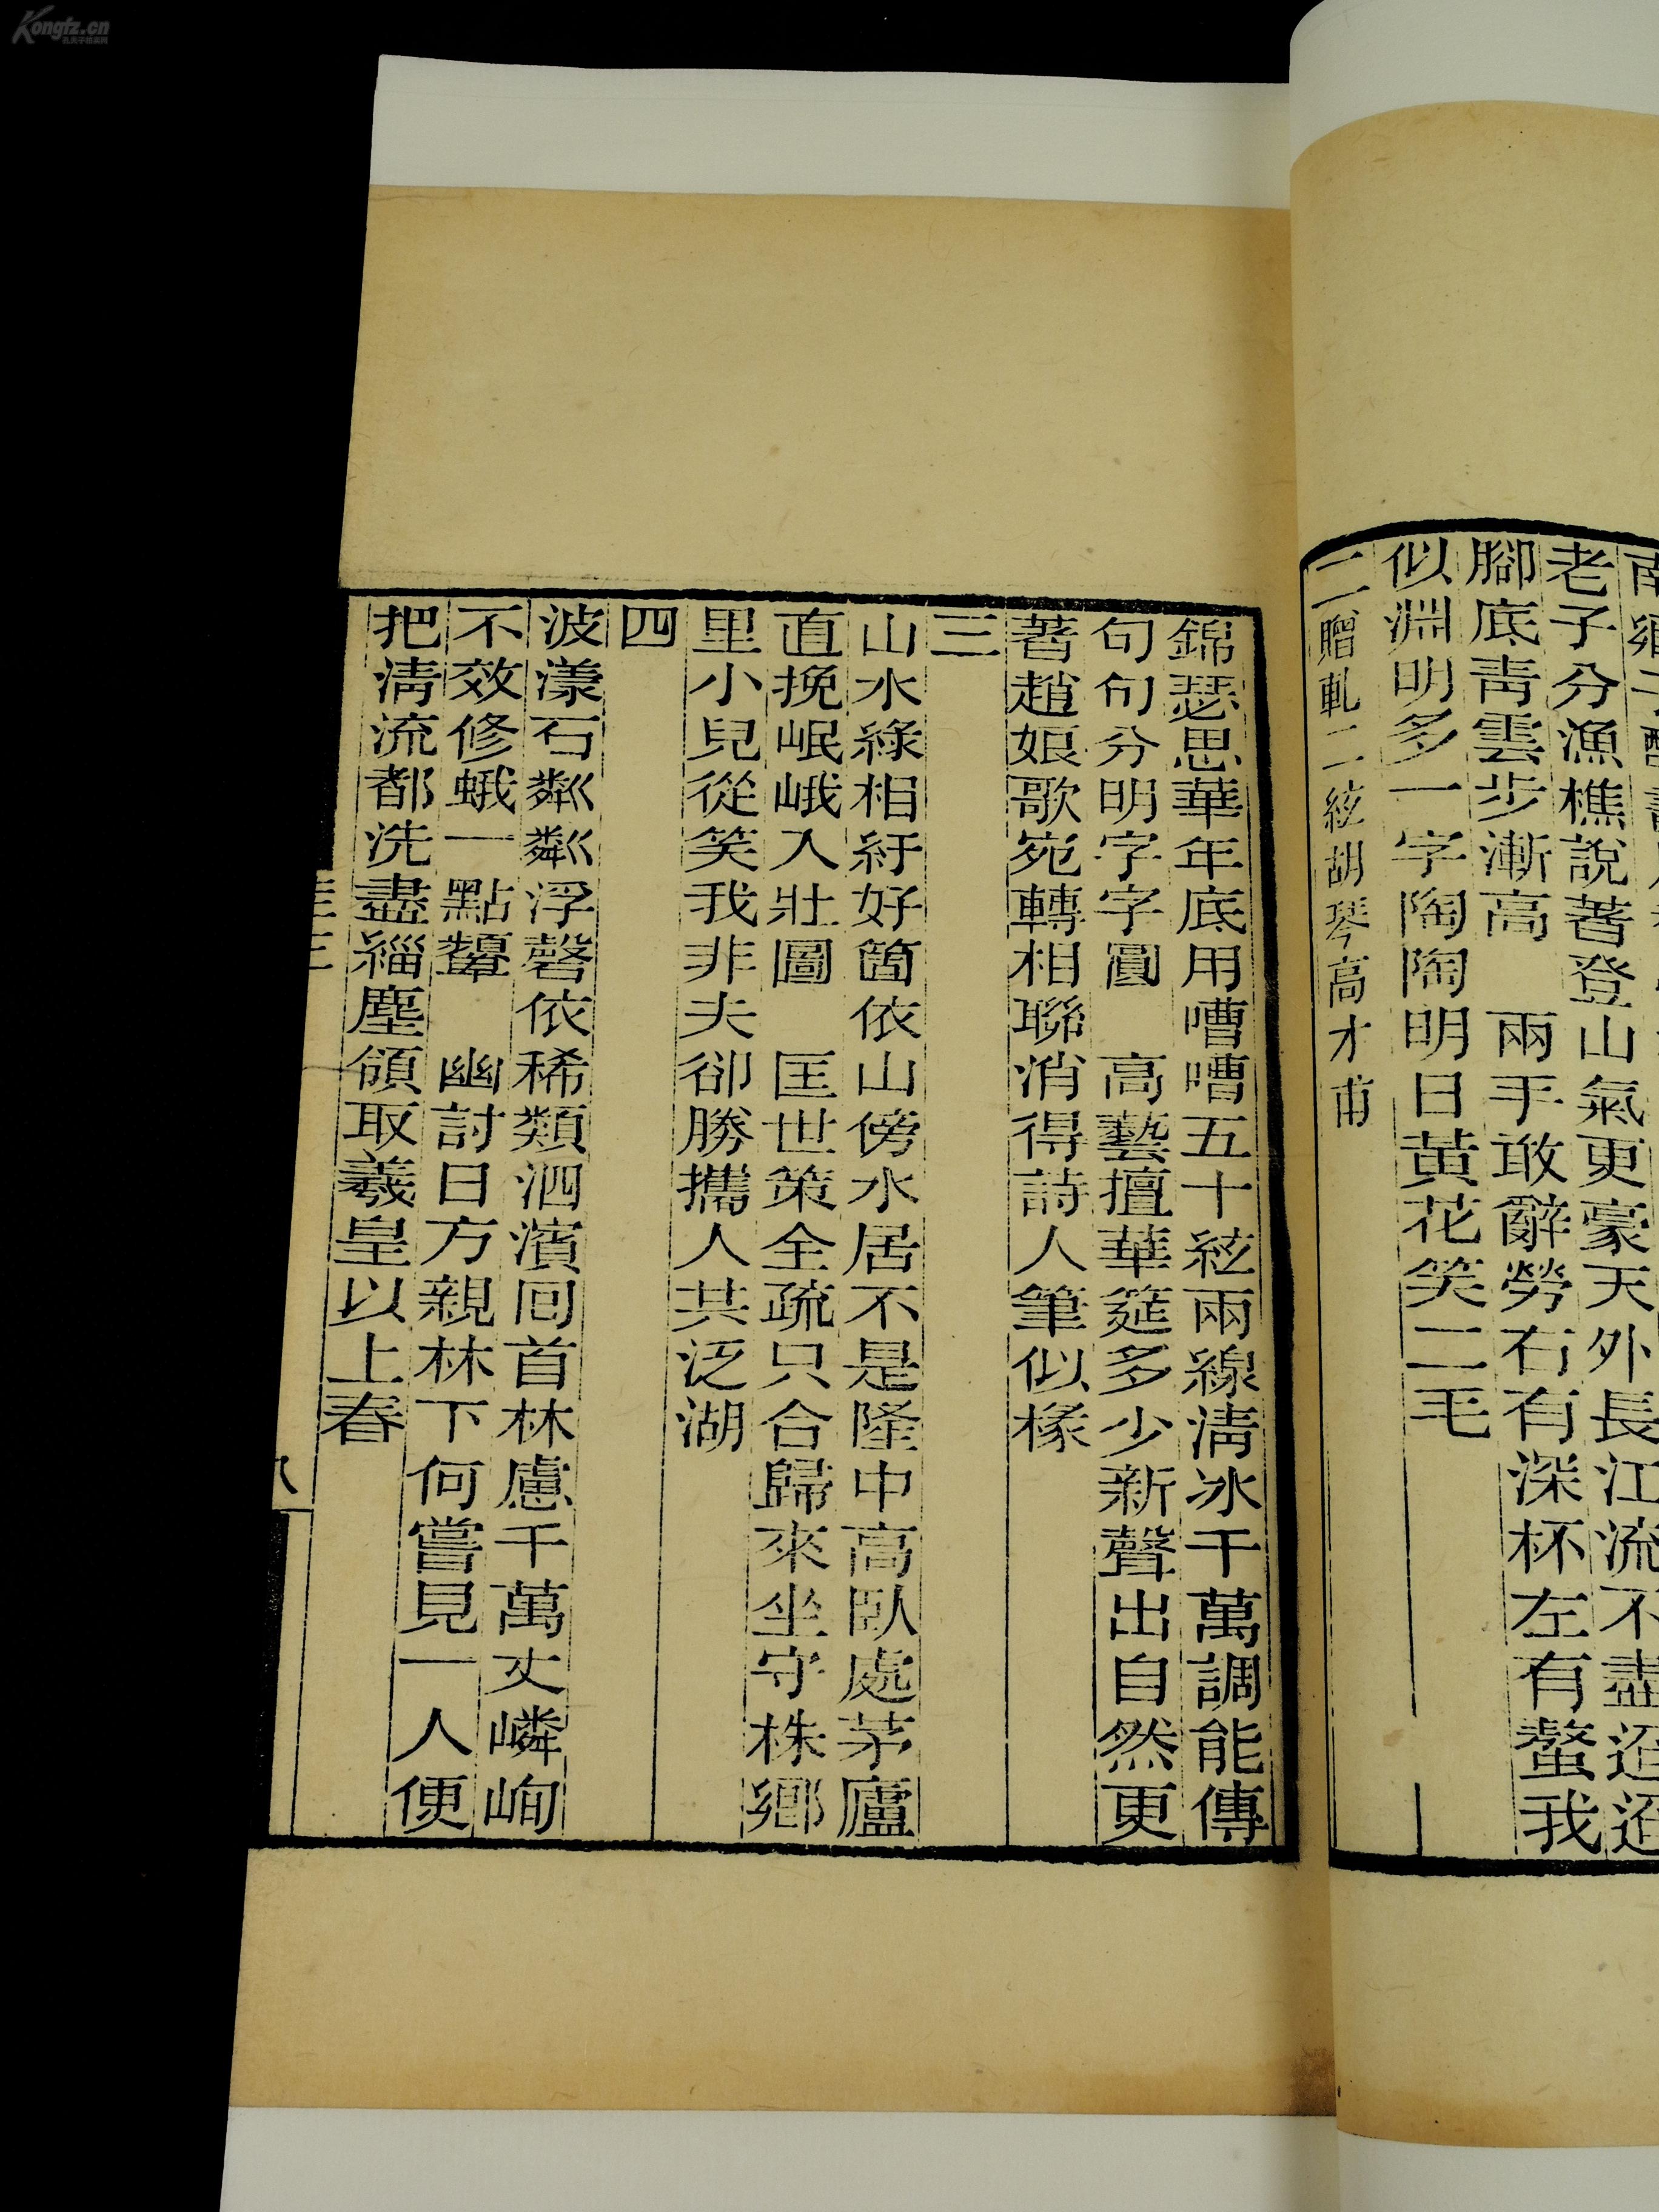 老子分漁樵說著登山氣更豪天外長江流不盡迢迢
腳底靑雲步漸高　兩手敢辭勞右有深杯左有螯我
似淵明多一字陶陶明日黃花笑二毛
二贈軋二絃胡琴高才甫
錦瑟思華年底用嘈嘈五十絃兩線淸冰千萬調能傳
句句分明字字圓　高藝擅華筵多少新聲出自然更
著趙娘歌宛轉相聯消得詩人筆似椽
三
山水綠相紆好箇依山傍水居不是隆中高臥處茅廬
直挽岷峨入壯圖　匡世策全疏只合歸來坐守株鄉
里小兒從笑我非夫卻勝攜人共泛湖
四
波漾石粼粼浮磬依稀類泗濱回首林慮千萬丈嶙峋
不效修蛾一點顰　幽討日方親林下何嘗見一人便
把淸流都洗盡緇塵領取羲皇以上春
八
Kongfz.cn